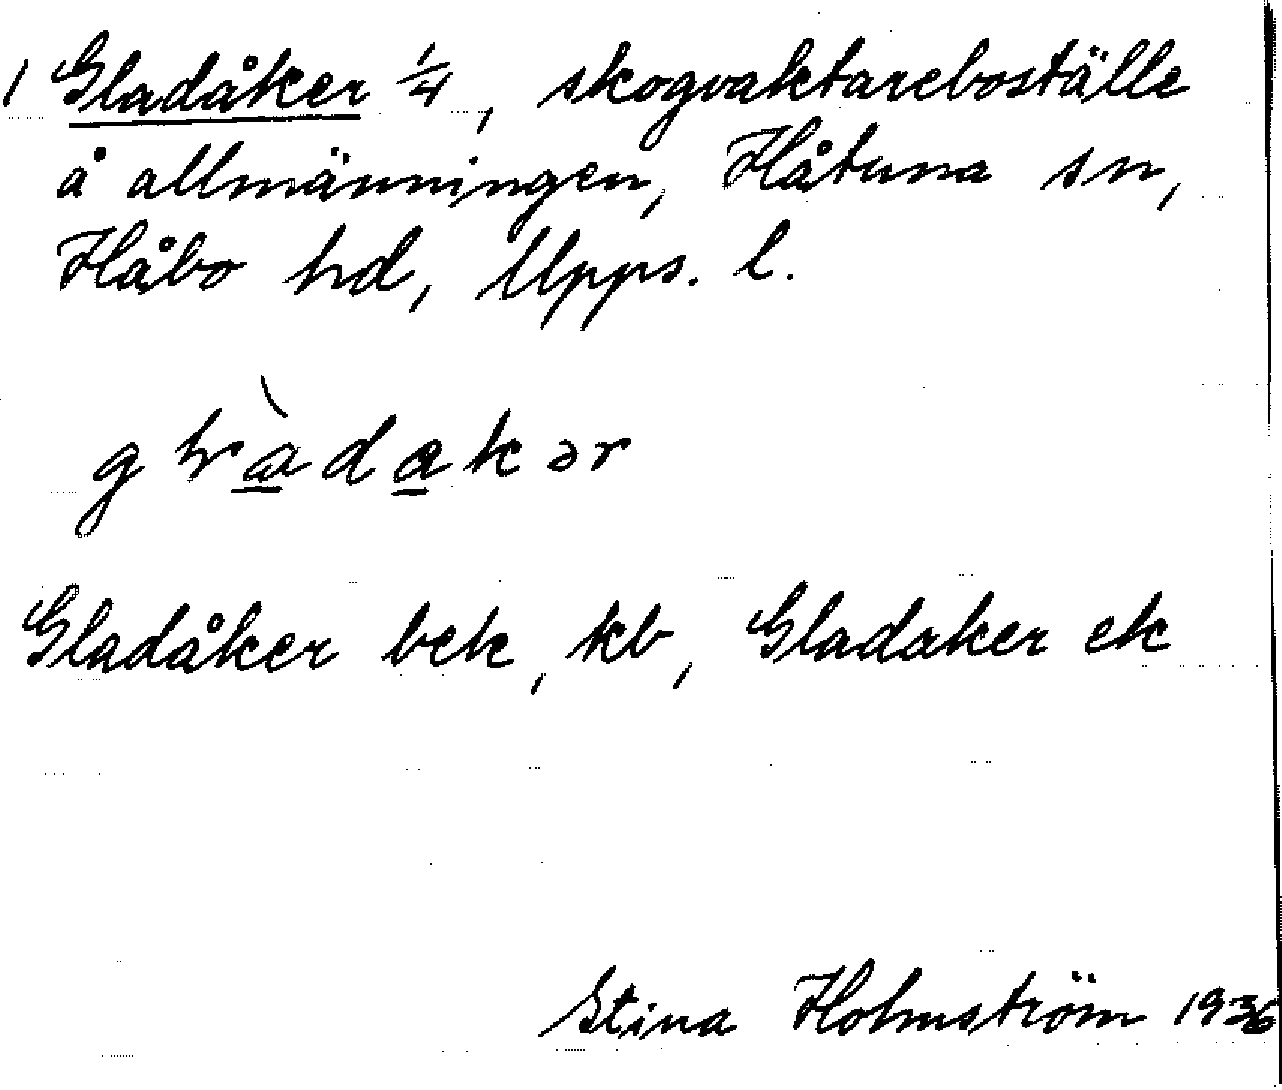 1 Gladåker 1/4, skogvaktareboställe
å allmänningen, Håtuna sn,
Håbo hd, Upps. l.
Gladåker bek, kb, Gladaker ek
Stina Holmström 1936